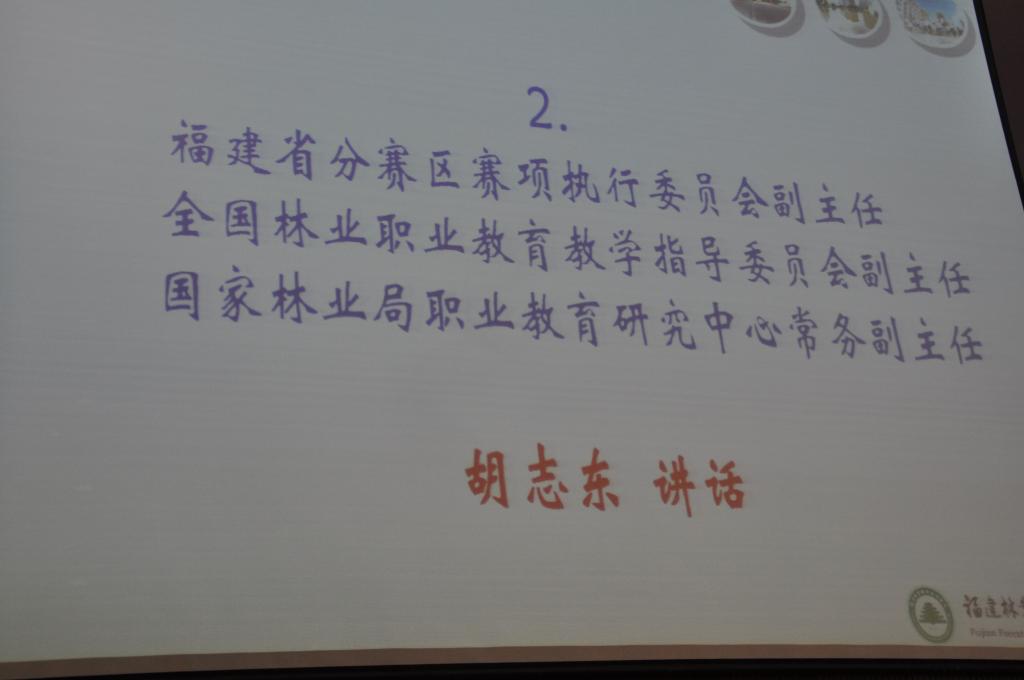 2.
福建省分赛区赛项执行委员会副主任
全国林业职业教育教学指导委员会副主任
国家林业局职业教育研究中心常务副主任
胡志东 讲话
福建林
Fujian